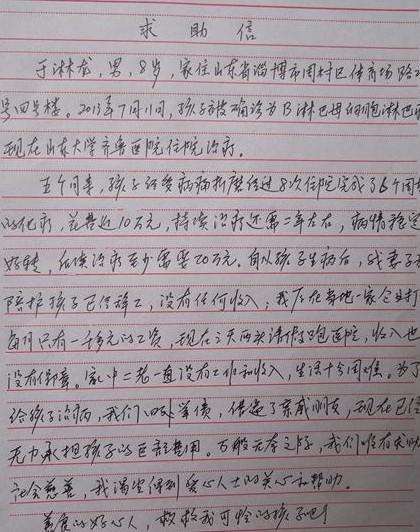 求助信
于淋龙，男，8岁，家住山东省淄博市周村区体育场路2
号四号楼。2013年7月11日，孩子被确诊为B淋巴母细胞淋巴
现在山东大学齐鲁医院住院治疗。
五个月来，孩子经受病痛折磨经过8次住院完成了6个周
的化疗，花费近10万元，持续治疗还需二年左右，病情稳定
好转，后续治疗至少需要20万元。自从孩子生病后，我妻子
陪护孩子已经辞工，没有任何收入；我在当地一家企业打
每月只有一千多元的工资，现在三天两头请假跑医院，收入也
没有保障。家中二老一直没有工作和收入，生活十分困难。为了
给孩子治病，我们四处举债，借遍了亲戚朋友，现在已经
无力承担孩子的巨额费用。万般无奈之际，我们唯有求助
社会慈善，我渴望得到爱心人士的关心和帮助。
善良的好心人，救救我可怜的孩子吧！